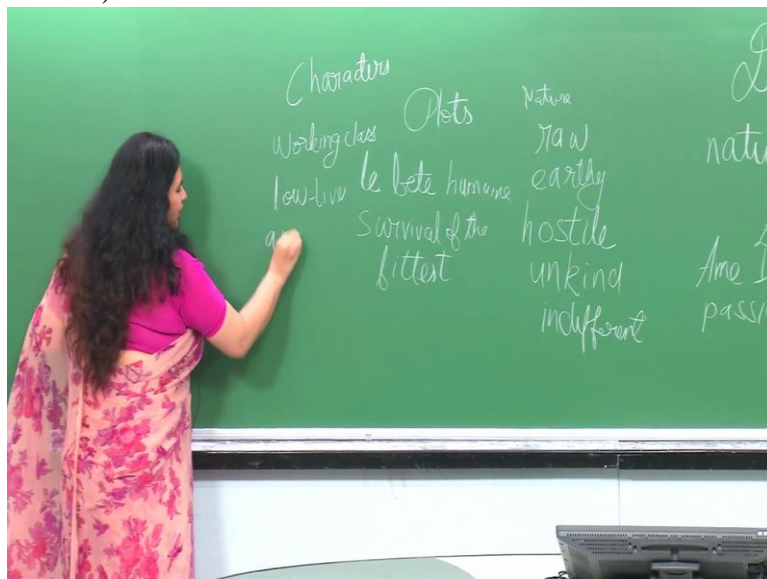 Characters
working class
low-live
Plots
le bete humaine
survival of the
fittest
Nature
raw
earthy
hostile
unkind
indifferent
natu
Ame
passi